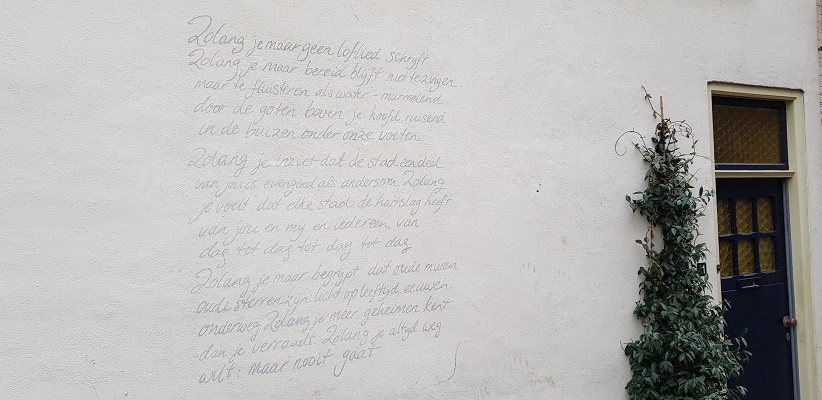 Zolang je maar geen loflied schrijft
Zolang je maar bereid blijft niet te zingen
maar te fluisteren als water - murmelend
door de goten boven je hoofd, ruisend
in de buizen onder onze voeten
Zolang je inziet dat de stad een deel
van jou is, evengoed als andersom Zolang
je voelt dat elke stad de hartslag heeft
van jou en mij en iedereen, van
dag tot dag tot dag tot dag
Zolang je maar begrijpt dat oude muren
oude sterren zijn, licht op leeftijd, eeuwen
onderweg Zolang je meer geheimen kent
dan je verraadt Zolang je altijd weg
wilt: maar nooit gaat